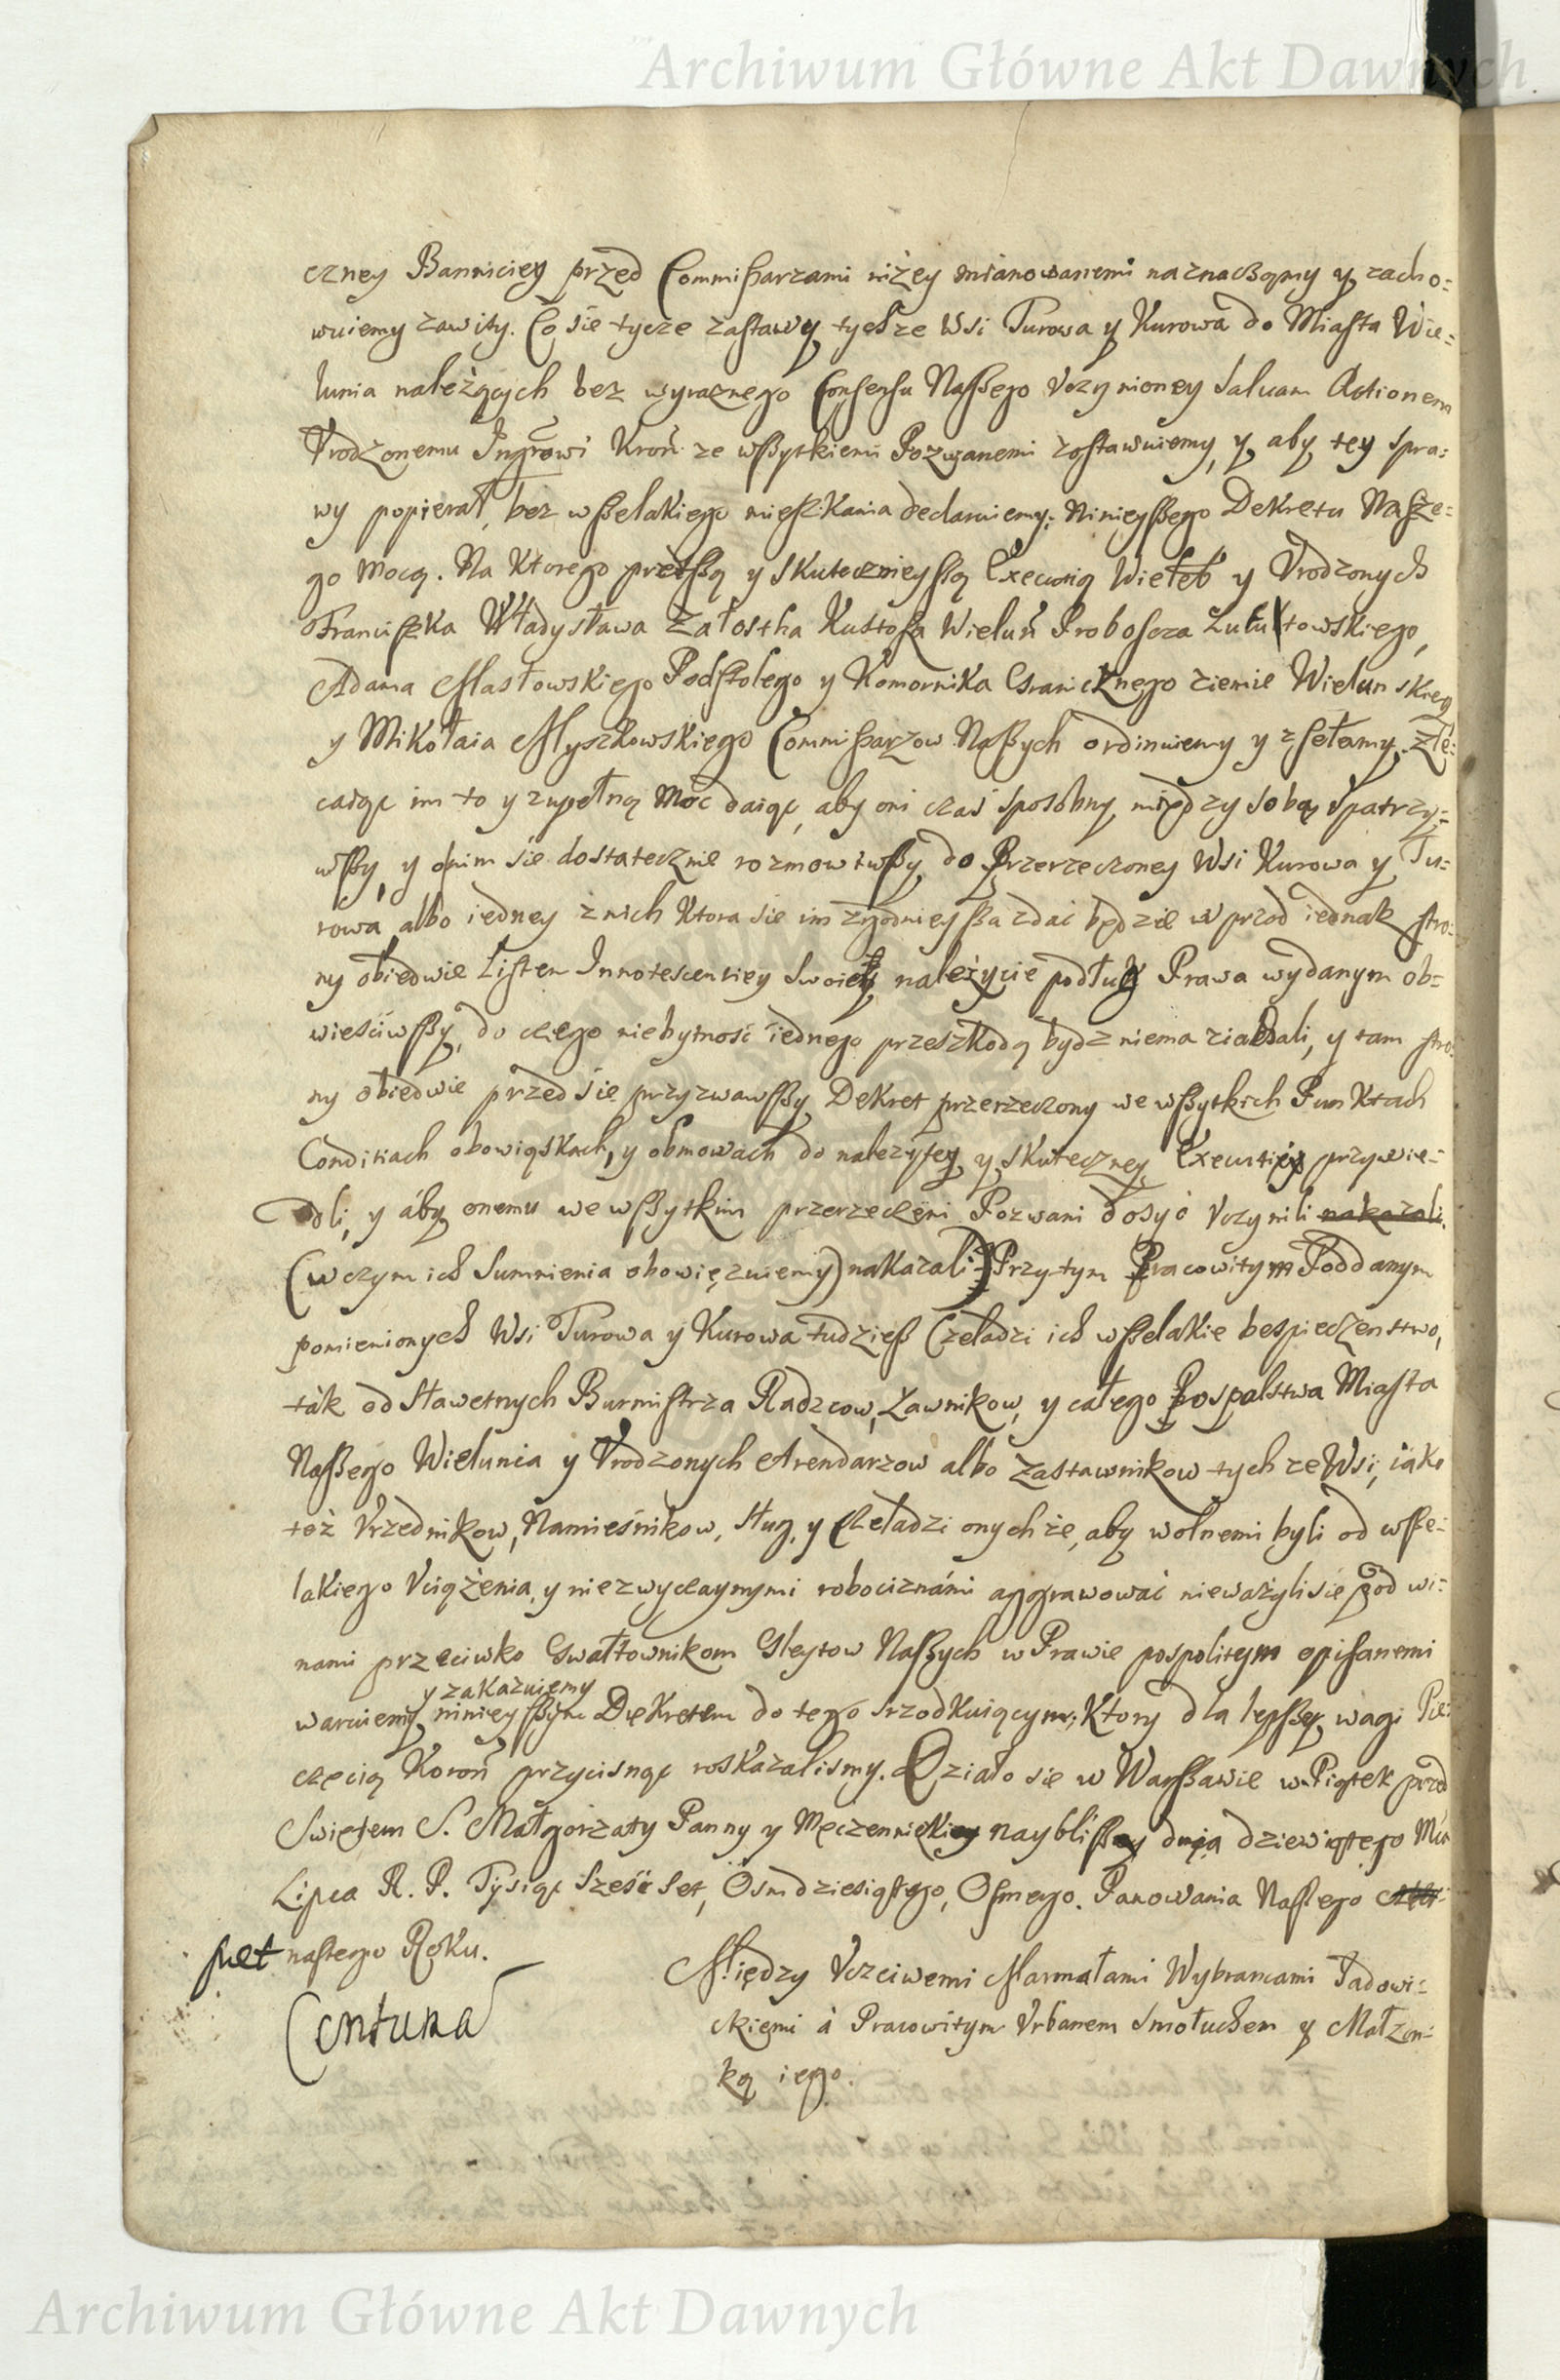 Archiwum Główne Akt Dawnych
czney Banniciey przed Commißarzami niżey mianowanemi naznaczamy y zacho=
wuiemy zawity. Co sie tycze zastawy tychże Wsi Turowa y Kurowa do Miasta Wie=
lunia należących bez wyraznego Consensu Naßego Vczynioney Saluam Actionem
Vrodzonemu Ingrowi Kroñ ze wßytkiemi Pozwanemi zostawuiemy, y aby tey spra=
wy popierał, bez wßelakiego mießkania declaruiemy. Ninieyßego Dekretu Naße=
go mocą. Na ktorego prętßą y skutecznieyßą Execucią Wieleb y Vrodzonych
Franciszka Władysława Załostha Kustoßa Wieluń Proboscza Lututowskiego,
Adama Masłowskiego Podstolego y Komornika Granicznego ziemie Wielunskiey
y Mikołaia Myszkowskiego Commißarzow Naßych ordinuiemy y zsełamy. Zle=
caiąc im to y zupełną Moc daiąc, aby oni czas sposobny między sobą vpatrzy=
wßy, y onim sie dostatecznie rozmowiwßy, do Przerzeczoney Wsi Kurowa y Tu=
rowa albo iedney znich ktora sie im zgodnieyßa zdać będzie wprzod iednak stro=
ny obiedwie Listem Innotescentiey swoiey należycie podług Prawa wydanym ob=
wieściwßy, do czego niebytność iednego przeszkodą bydz niema ziachali, y tam stro=
ny obiedwie przed sie przyzwawßy Dekret przerzeczony we wßytkich Punktach
Conditiach obowiąskach, y obmowach do należytey y skuteczney Executiey przywie=
dli, y aby onemu we wßytkim przerzeczeni Pozwani dosyć Vczynili nakazali.
(w czym ich Sumnienia obowięzuiemy) nakazali) Przytym Pracowitym Poddanym
pomienionych Wsi Turowa y Kurowa tudzieß Czeladzi ich wßelakie bespieczenstwo,
ták od Sławetnych Burmistrza Radzcow, Ławnikow, y całego Pospolstwa Miasta
Naßego Wielunia y Vrodzonych Arendarzow albo Zastawnikow tychże Wsi, iáko
też Vrzednikow, Namieśnikow, Sług, y Czeladzi onychże, aby wolnemi byli od wße=
lakiego Vciążenia, y niezwyczaynymi robociznámi aggrawować nieważyli sie pod wi=
nami przeciwko Gwałtownikom Gleytow Naßych w Prawie pospolitym opisanemi
y zakazuiemy
waruiemy ninieyßym Dekretem do tego srzodkuiącym, Ktory dla lepßey wagi Pie=
częcią Koroñ przycisnąć roskazalismy. Działo sie w Warßawie w Piątek przed
Swiętem S. Małgorzaty Panny y Męczenniki naybliß dnia dziewiątego Mca
Lipca R. P. Tysiąc Sześć set, Osmdziesiątego, Osmego. Panowania Naßego
pięt nastego Roku.
Centuria
Między Vczciwemi Marmałami Wybrancami Jadowi=
ckiemi á Pracowitym Vrbanem Smołuchem y Małzon=
ką iego.
Archiwum Główne Akt Dawnych